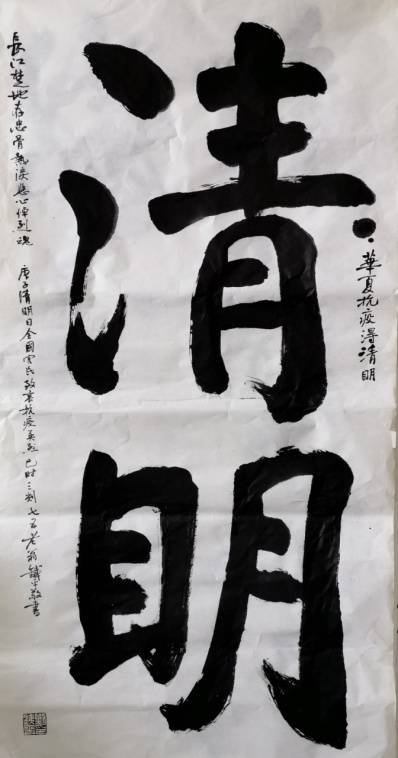 清明
華夏抗疫得清明
長江楚地存忠骨熱淚悲心悼烈魂
庚子清明日全國軍民致哀抗疫英烈巳时三刻七五老翁鐵牛敬書